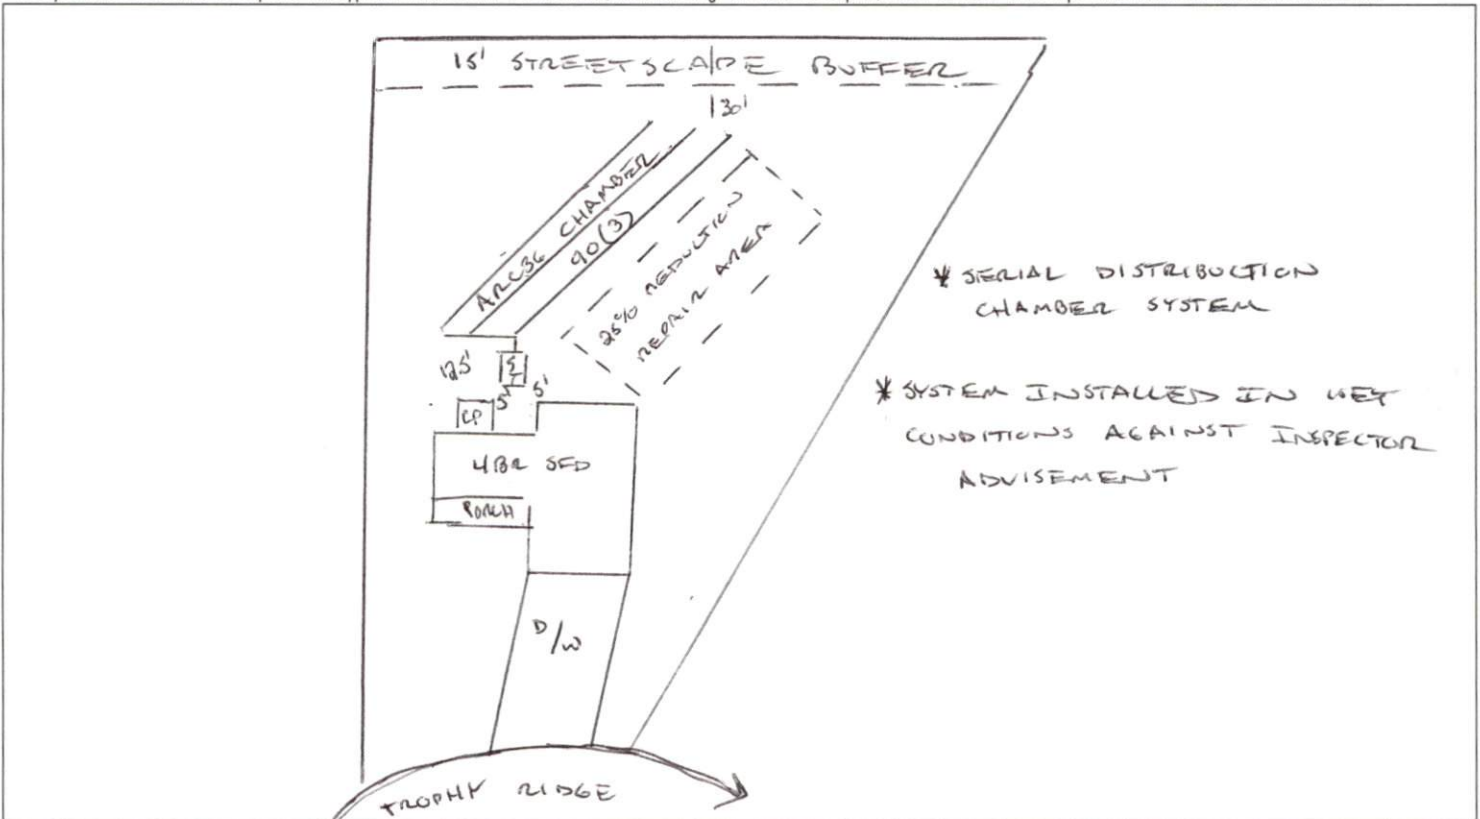 15' STREETSCAPE BUFFER
30'
ARC36 CHAMBER
90(3)
25% REDUCTION
REPAIR AREA
* SERIAL DISTRIBUTION
CHAMBER SYSTEM
125'
ST
5'
5'
CP
* SYSTEM INSTALLED IN WET
CONDITIONS AGAINST INSPECTOR
ADVISEMENT
4BR SFD
PORCH
D/W
TROPHY RIDGE